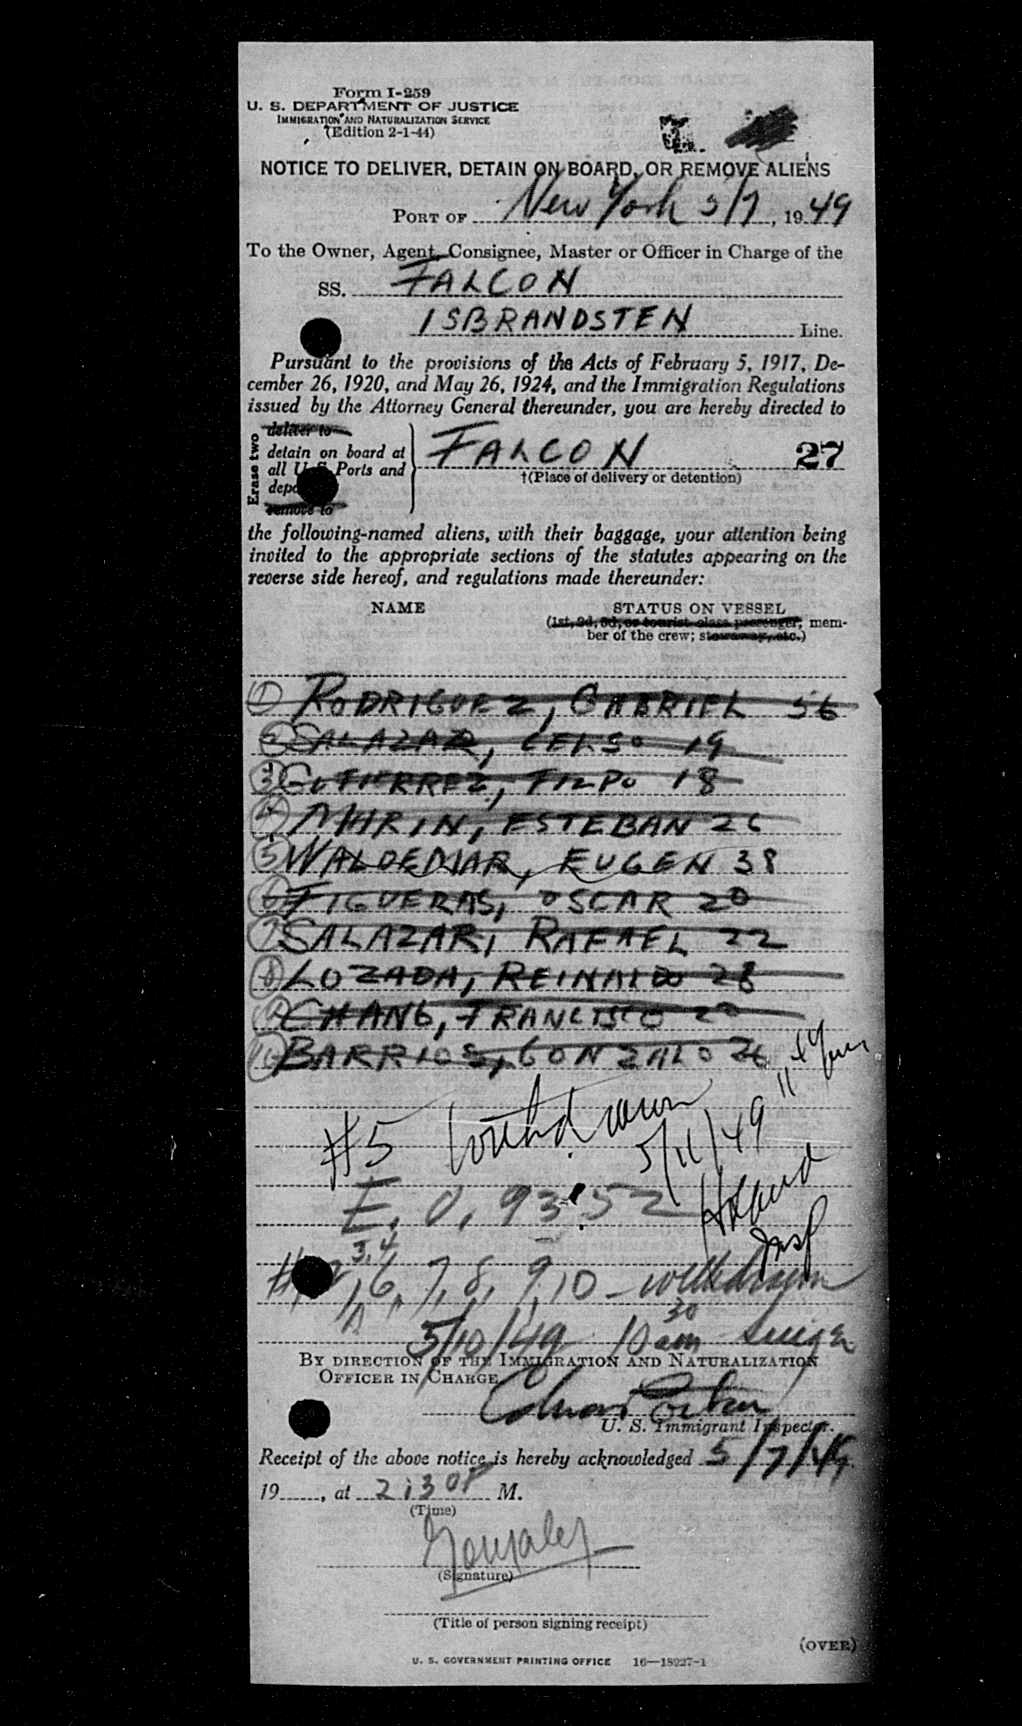 Form I-259
U. S. DEPARTMENT OF JUSTICE
IMMIGRATION AND NATURALIZATION SERVICE
(Edition 2-1-44)
NOTICE TO DELIVER, DETAIN ON BOARD, OR REMOVE ALIENS
PORT OF New York 5/7, 1949
To the Owner, Agent, Consignee, Master or Officer in Charge of the
SS. FALCON
ISBRANDSTEN Line.
Pursuant to the provisions of the Acts of February 5, 1917, De-
cember 26, 1920, and May 26, 1924, and the Immigration Regulations
issued by the Attorney General thereunder, you are hereby directed to
Erase two
deliver to
detain on board at
all U. S. Ports and
remove to
FALCON 27
†(Place of delivery or detention)
the following-named aliens, with their baggage, your attention being
invited to the appropriate sections of the statutes appearing on the
reverse side hereof, and regulations made thereunder:
NAME STATUS ON VESSEL
(1st, 2d, 3d, or tourist class passenger; mem-
ber of the crew; stowaway, etc.)
1 RODRIGUEZ, GABRIEL 56
2 SALAZAR, CELSO 19
3 GUTIERREZ, FILPO 18
4 MARIN, ESTEBAN 26
5 WALDEMAR, EUGEN 38
6 FIGUERAS, OSCAR 20
7 SALAZAR, RAFAEL 22
8 LOZADA, REINALDO 28
9 CHANG, FRANCISCO
10 BARRIOS, GONZALO 26
#5 withdrawn 5/11/49 11
Holland
Insp
E. O. 9352
3, 4
6, 7, 8, 9, 10 - withdrawn
5/10/49 10 30 am
BY DIRECTION OF THE IMMIGRATION AND NATURALIZATION
OFFICER IN CHARGE
U. S. Immigrant Inspector.
Receipt of the above notice is hereby acknowledged 5/7/49.
19, at 2:30 P M.
(Time)
Gonzalez
(Signature)
(Title of person signing receipt)
(OVER)
U. S. GOVERNMENT PRINTING OFFICE 16—18927-1